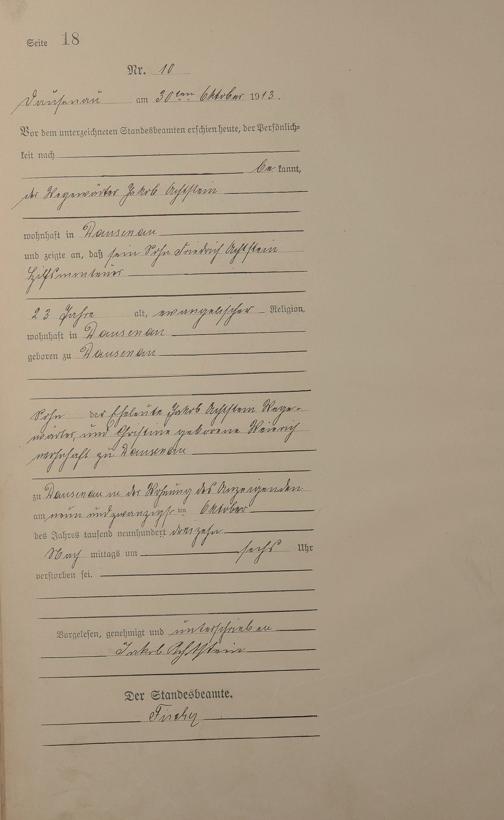 Seite 18
Nr. 10
Dausenau am 30ten Oktober 1913.
Vor dem unterzeichneten Standesbeamten erschien heute, der Persönlich-
keit nach
be kannt,
der Wegewärter Jakob Achtstein
wohnhaft in Dausenau
und zeigte an, daß sein Sohn Friedrich Achtstein
Hilfsmonteur
23 Jahre alt, evangelischer Religion,
wohnhaft in Dausenau
geboren zu Dausenau
Sohn der Eheleute Jakob Achtstein Wege-
wärter, und Christine geborene Weinrich
wohnhaft zu Dausenau
zu Dausenau in der Wohnung des Anzeigenden
am neun und zwanzigsten Oktober
des Jahres tausend neunhundert dreizehn
Nach mittags um sechs Uhr
verstorben sei.
Vorgelesen, genehmigt und unterschrieben
Jakob Achtstein
Der Standesbeamte.